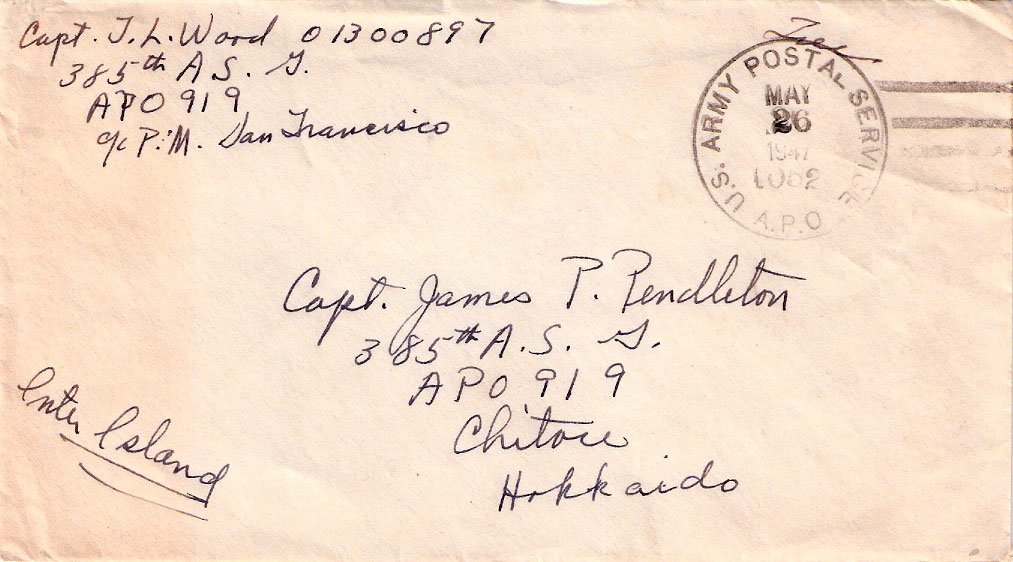 Capt. T. L. Wood O 1300897
385th A. S. G.
APO 919
c/o P.M. San Francisco
Free
U.S. ARMY POSTAL SERVICE
MAY
26
1947
A.P.O
Capt. James P. Pendleton
385th A. S. G.
APO 919
Chitose
Hokkaido
Inter Island